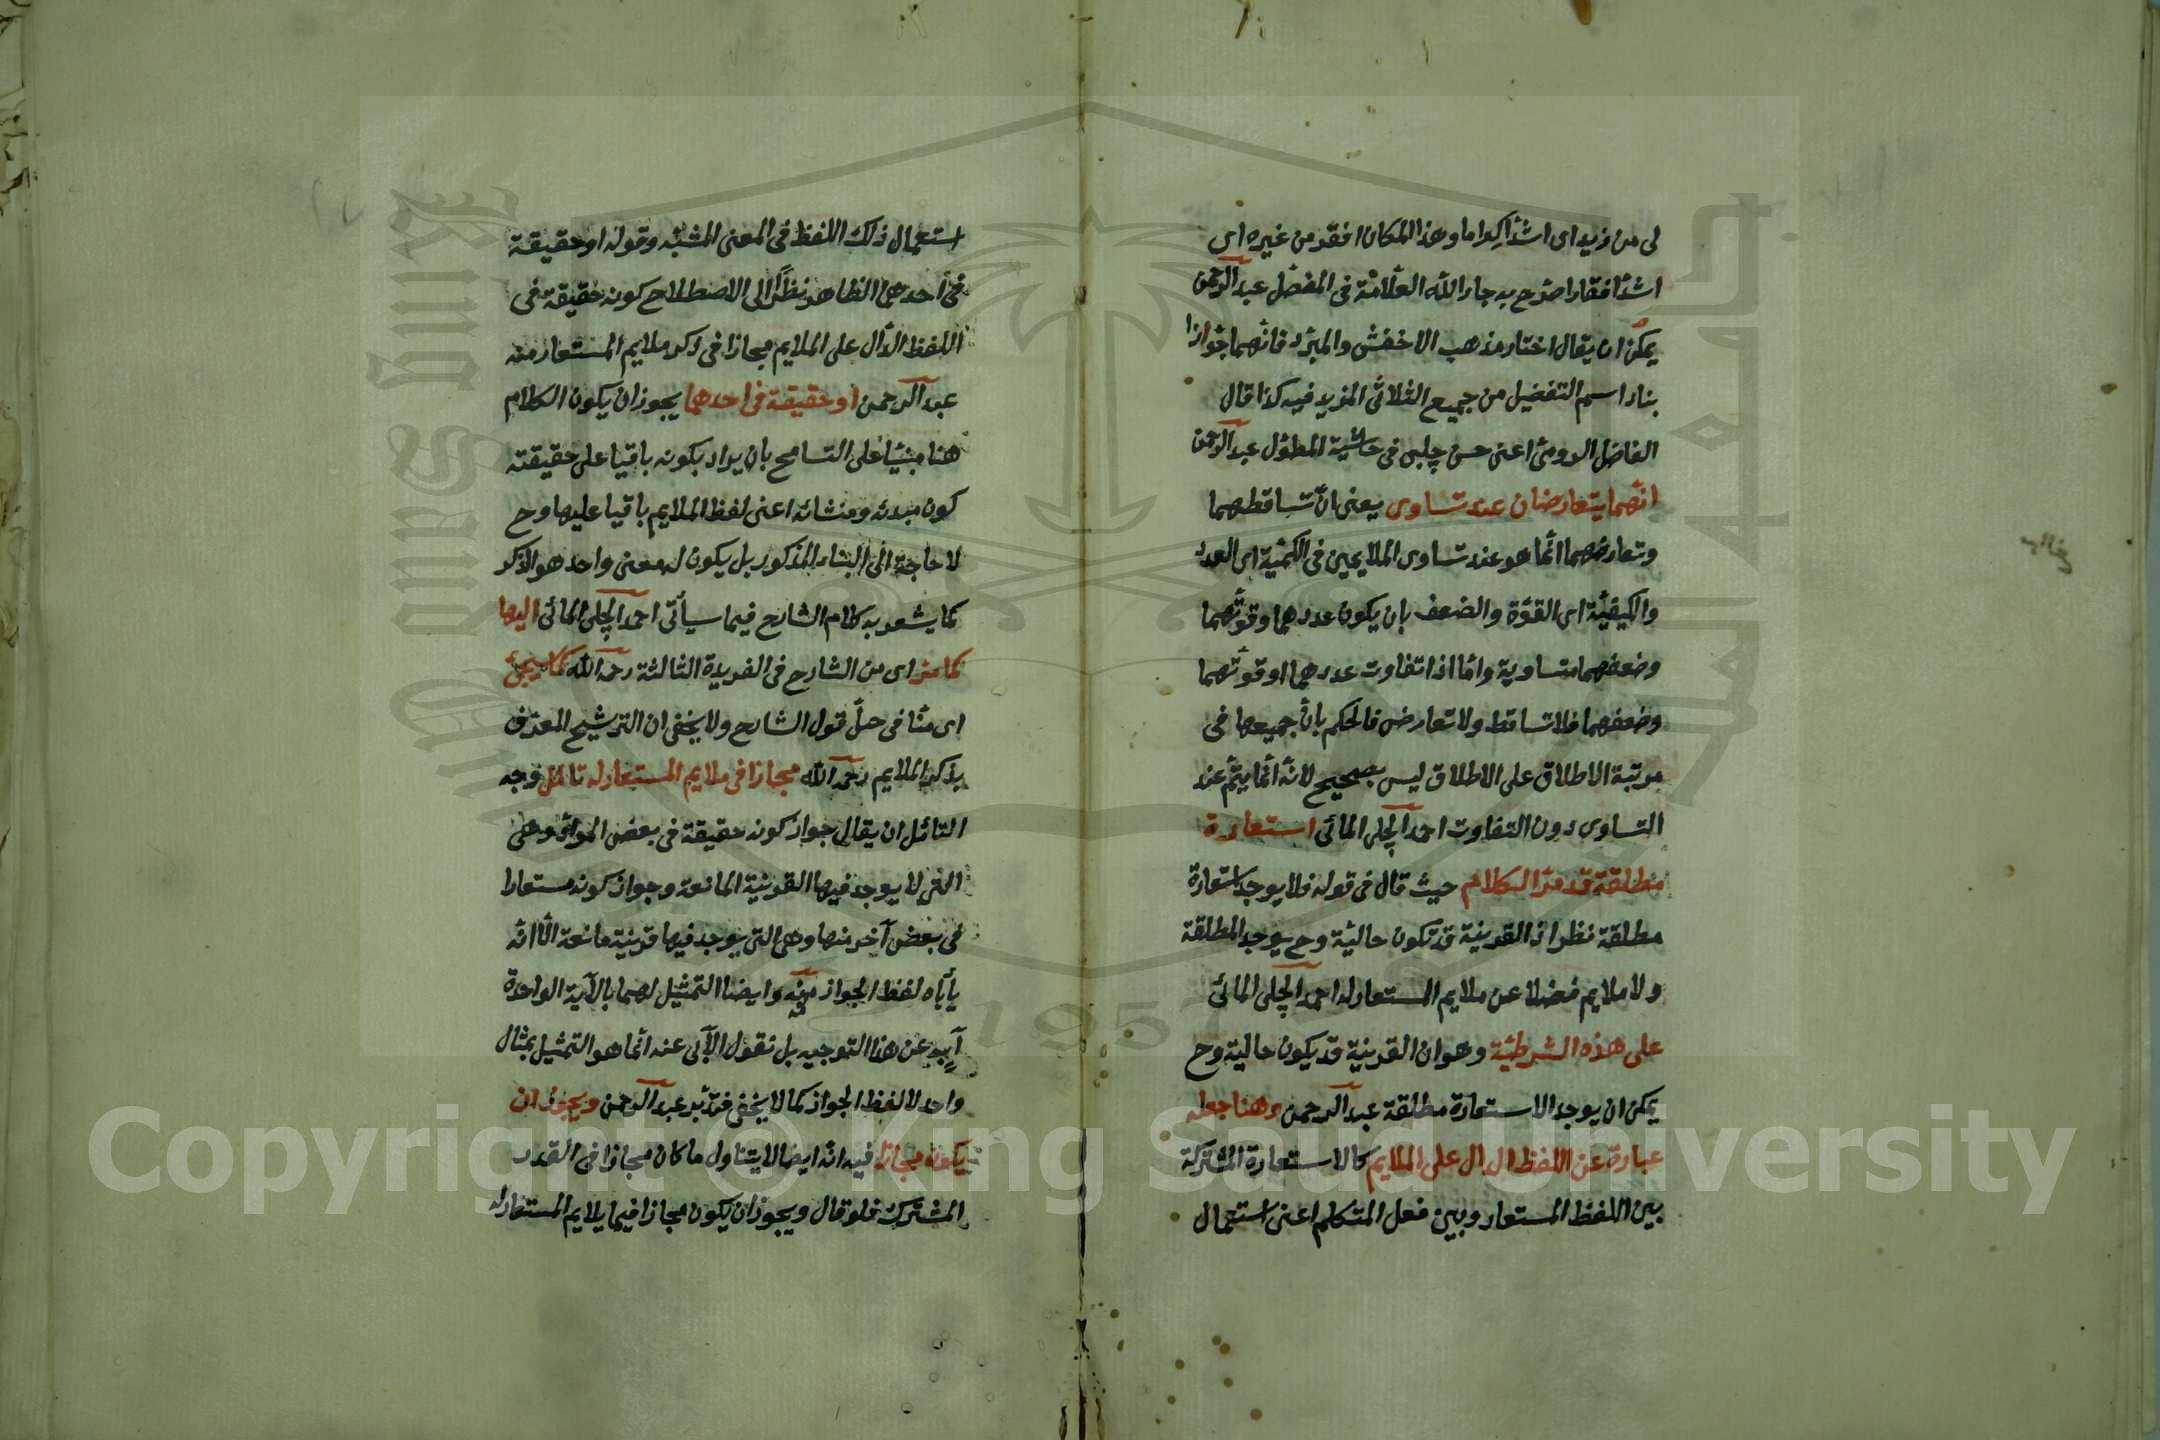 لى من زيد اى اشدّ اكراما وهذا المكان افقر من غيره اى
اشدّ افقارا صرّح به جار الله العلّامة فى المفصّل عبد الرحمن
يمكن ان يقال اختار مذهب الاخفش والمبرّد فانّهما جوّازا
بناء اسم التفضيل من جميع الثلاثى المزيد فيه كذا قال
الفاضل الرومى اعنى حسن چلبى فى حاشية المطوّل عبد الرحمن
انّهما يتعارضان عند تساوى يعنى انّ تساقطهما
وتعارضهما انّما هو عند تساوى الملايمين فى الكمّية اى العدد
والكيفيّة اى القوّة والضعف بان يكون عددهما وقوّتهما
وضعفهما متساوية وامّا اذا تفاوت عددهما او قوّتهما
وضعفهما فلا تساقط ولا تعارض فالحكم بانّ جميعها فى
مرتبة الاطلاق على الاطلاق ليس بصحيح لانّه انّما يتمّ عند
التساوى دون التفاوت احمد الچلى المائى استعارة
مطلقة قد مرّ الكلام حيث قال فى قوله فلا يوجد استعارة
مطلقة نظر اذ القرينة قد تكون حاليّة وح يوجد المطلقة
ولا ملايم فضلا عن ملايم المستعار له احمد الچلى المائى
على هذه الشرطيّة وهو ان القرينة قد يكون حالية وح
يمكن ان يوجد الاستعارة مطلقة عبد الرحمن وهنا جعله
عبارة عن اللفظ الدال على الملايم كالاستعارة المشتركة
بين اللفظ المستعار وبين فعل المتكلم اعنى استعمال
استعمال ذلك اللفظ فى المعنى المشبّه وقوله او حقيقة
فى احدهما الظاهر نظرا الى الاصطلاح كونه حقيقة فى
اللفظ الدّال على الملايم مجازا فى ذكر ملايم المستعار منه
عبد الرحمن او حقيقة فى احدهما يجوز ان يكون الكلام
هنا مبنيّا على التسامح بان يراد بكونه باقيا على حقيقته
كون مبدئه ومنشائه اعنى لفظ الملايم باقيا عليها وح
لا حاجة الى البناء المذكور بل يكون له معنى واحد هو الذكر
كما يشعر به كلام الشارح فيما سيأتى احمد الچلى المائى اليها
كما مرّ اى من الشارح فى الفريدة الثالثة رحمه الله كما يجئ
اى منّا فى حلّ قول الشارح ولا يخفى ان الترشيح المعرّف
بذكر الملايم رحمه الله مجازا فى ملايم المستعار له تامّل وجه
التامّل ان يقال جواز كونه حقيقة فى بعض الموادّ وهى
التى لا يوجد فيها القرينة المانعة وجواز كونه مستعارا
فى بعض آخر منها وهى التى يوجد فيها قرينة مانعة الّا انّه
يأباه لفظ الجواز منه وايضا التمثيل لهما بالآية الواحدة
آبٍ عن هذا التوجيه بل نقول الآبى عنه انّما هو التمثيل بمثال
واحد لا لفظ الجواز كما لا يخفى فتدبّر عبد الرحمن ويجوز ان
يكون مجازا فيه انّه ايضا لا يتناول ما كان مجازا فى القدر
المشترك فلو قال ويجوز ان يكون مجازا فيما يلايم المستعار له
Copyright © King Saud University
1957